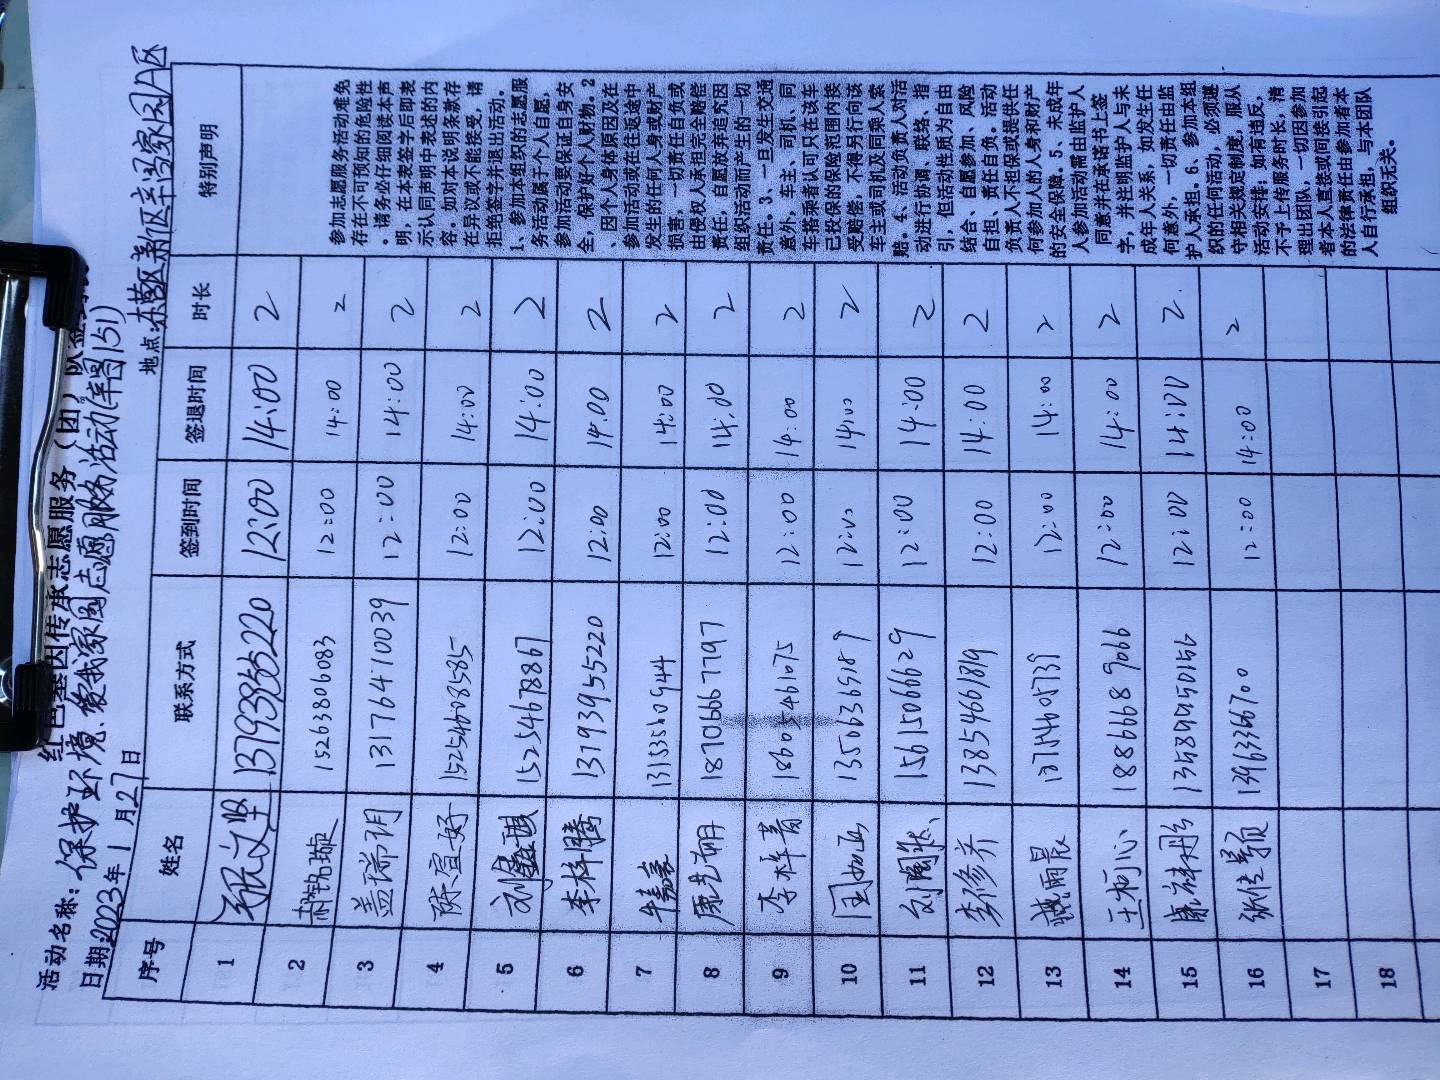 红色基因传承志愿服务（团）队签
活动名称：保护环境、爱我家园志愿服务活动(辛昌151)
日期:2023年1月27日 地点:东营区新区辛昌家园A区
序号 姓名 联系方式 签到时间 签退时间 时长 特别声明
1 文坚 12:00 14:00 2
2 郝铭璇 15263806083 12:00 14:00 2
3 盖瑞玥 13176410039 12:00 14:00 2
4 陈宣好 15254608585 12:00 14:00 2
5 刘鑫淇 15254678867 12:00 14:00 2
6 李梓腾 13793955220 12:00 14:00 2
7 13153560944 12:00 14:00 2
8 康艺玥 18706667797 12:00 14:00 2
9 李梓菁 18605461075 12:00 14:00 2
10 国 13506369189 12:00 14:00 2
11 刘 15615066629 12:00 14:00 2
12 李修齐 13854661819 12:00 14:00 2
13 戴雨晨 12:00 14:00 2
14 王柯心 18866689066 12:00 14:00 2
15 康祥彤 13589950156 12:00 14:00 2
16 张佳 13963366700 12:00 14:00 2
17
18
参加志愿服务活动难免
存在不可预知的危险性
。请务必仔细阅读本声
明，在本表签字后即表
示认同声明中表述的内
容。如对本说明条款存
在异议或不能接受，请
拒绝签字并退出活动。
1、参加本组织的志愿服
务活动属于个人自愿，
参加活动要保证自身安
全，保护好个人财物。2
、因个人身体原因及在
参加活动或在往返途中
发生的任何人身或财产
损害，一切责任自负或
由侵权人承担完全赔偿
责任，自愿放弃追究因
组织活动而产生的一切
责任。3、一旦发生交通
意外，车主、司机、同
车搭乘者认可只在该车
已投保的保险范围内接
受赔偿，不得另行向该
车主或司机及同乘人索
赔。4、活动负责人对活
动进行协调、联络、指
引，但活动性质为自由
结合、自愿参加、风险
自担、责任自负。活动
负责人不担保或提供任
何参加人的人身和财产
的安全保障。5、未成年
人参加活动需由监护人
同意并在承诺书上签
字，并注明监护人与未
成年人关系，如发生任
何意外，一切责任由监
护人承担。6、参加本组
织的任何活动，必须遵
守相关规定制度，服从
活动安排；如有违反，
不予上传服务时长，清
理出团队，一切因参加
者本人直接或间接引起
的法律责任由参加者本
人自行承担，与本团队
组织无关。